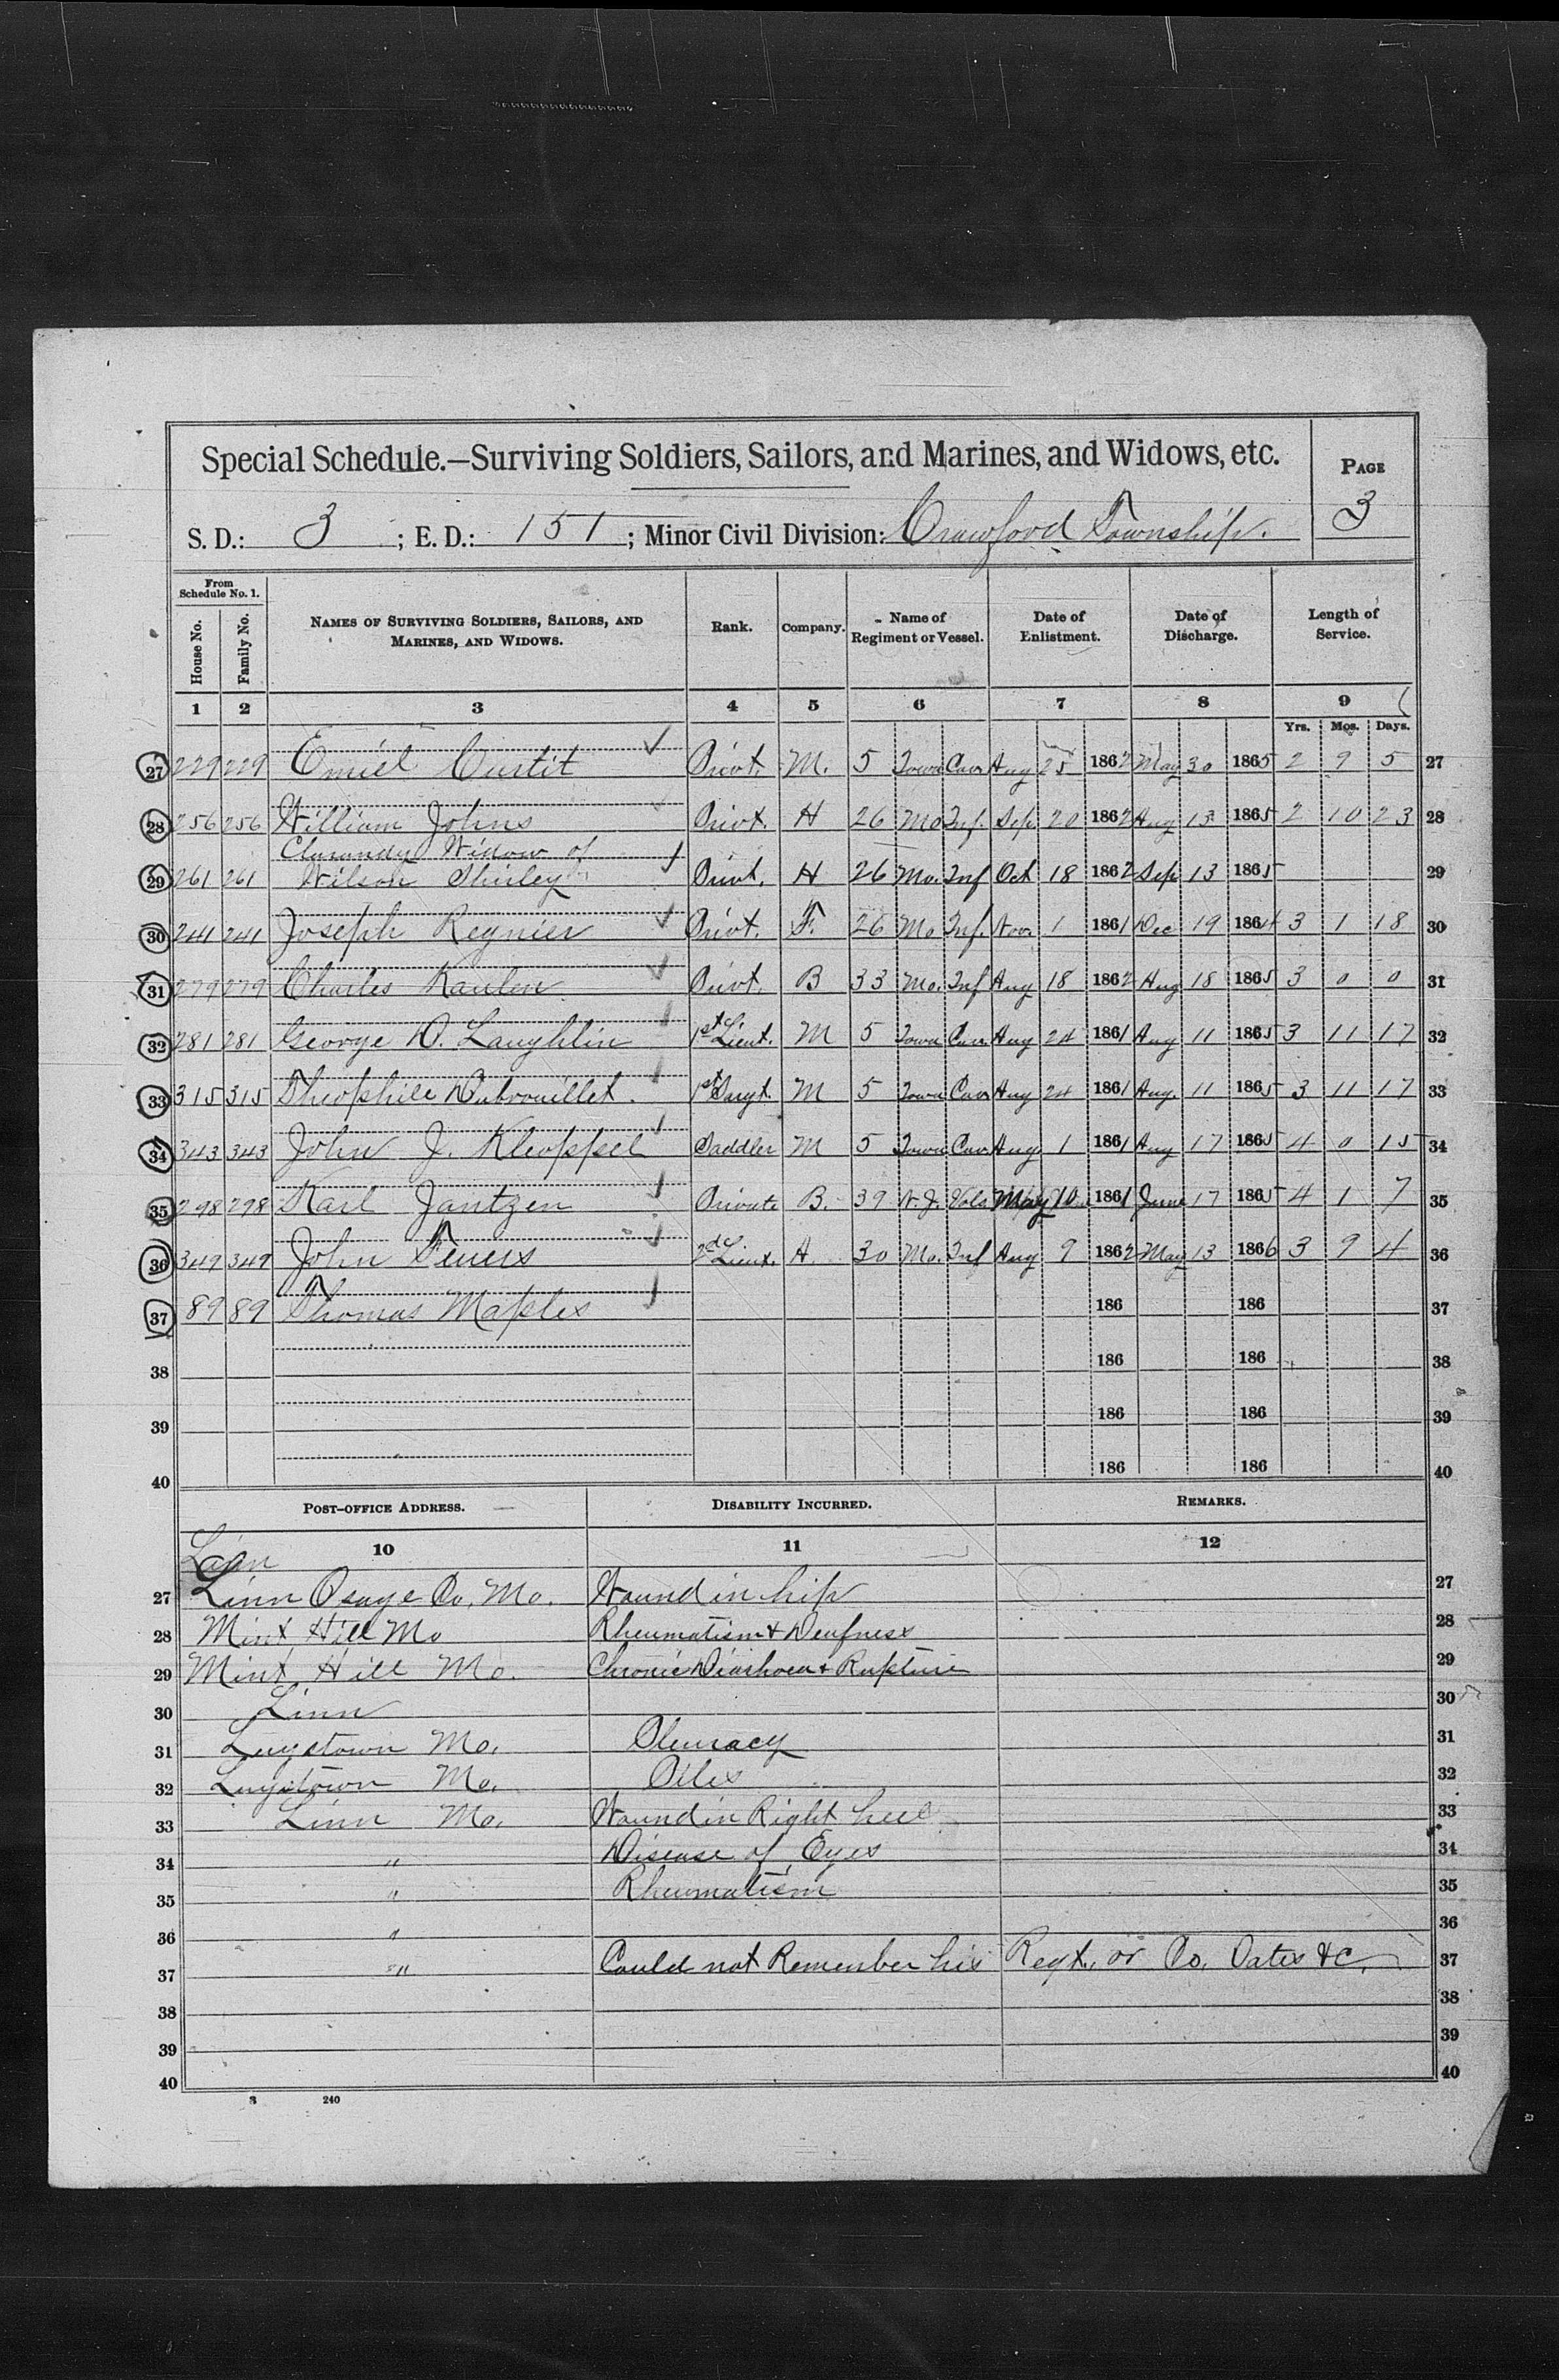 Special Schedule.—Surviving Soldiers, Sailors, and Marines, and Widows, etc.
PAGE
3
S. D.: 3 ; E. D.: 151 ; Minor Civil Division: Crawford Township.
From Schedule No. 1.
House No. Family No. NAMES OF SURVIVING SOLDIERS, SAILORS, AND MARINES, AND WIDOWS. Rank. Company. Name of Regiment or Vessel. Date of Enlistment. Date of Discharge. Length of Service.
1 2 3 4 5 6 7 8 9
Yrs. Mos. Days.
27 229 229 Emiel Curtit Privt. M. 5 Iowa Cav Aug 25 1862 May 30 1865 2 9 5 27
28 256 256 William Johns Privt. H 26 Mo Inf. Sep. 20 1862 Aug 13 1865 2 10 23 28
Widow of
29 261 261 Wilson Shirley Privt. H 26 Mo. Inf Oct 18 1862 Sep 13 1865 29
30 241 241 Joseph Regnier Privt. F. 26 Mo Inf. Nov. 1 1861 Dec 19 1864 3 1 18 30
31 279 279 Charles Kaulen Privt. B 33 Mo. Inf Aug 18 1862 Aug 18 1865 3 0 0 31
32 281 281 George D. Laughlin 1st Lieut. M 5 Iowa Cav. Aug 24 1861 Aug 11 1865 3 11 17 32
33 315 315 Theophile Dubrouillet. 1st Sargt. M 5 Iowa Cav Aug 24 1861 Aug. 11 1865 3 11 17 33
34 343 343 John J. Kleoppel Saddler M 5 Iowa Cav Aug. 1 1861 Aug 17 1865 4 0 15 34
35 298 298 Karl Jantzen Private B. 39 N. J. Vols May 10 1861 June 17 1865 4 1 7 35
36 349 349 John Feuers 2d Lieut. A. 30 Mo. Inf Aug 9 1862 May 13 1866 3 9 4 36
37 89 89 Thomas Maples 186 186 37
38 186 186 38
39 186 186 39
40 186 186 40
POST-OFFICE ADDRESS. DISABILITY INCURRED. REMARKS.
10 11 12
27 Linn Osage Co. Mo. Wound in hip 27
28 Mint Hill Mo Rheumatism & Deafness 28
29 Mint Hill Mo. Chronic Diarhoea & Rupture 29
30 Linn 30
31 Luystown Mo. Pleuracy 31
32 Luystown Mo. Piles 32
33 Linn Mo. Wound in Right heel 33
34 " Disease of Eyes 34
35 " Rheumatism 35
36 " 36
37 " Could not Remember his Regt. or Co. Dates &c. 37
38 38
39 39
40 40
3 240